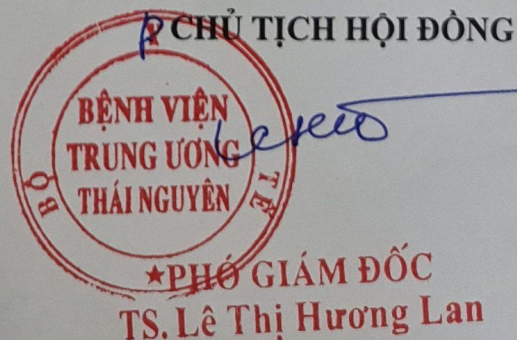 CHỦ TỊCH HỘI ĐỒNG
BỘ Y TẾ
BỆNH VIỆN
TRUNG ƯƠNG
THÁI NGUYÊN
★PHÓ GIÁM ĐỐC
TS. Lê Thị Hương Lan